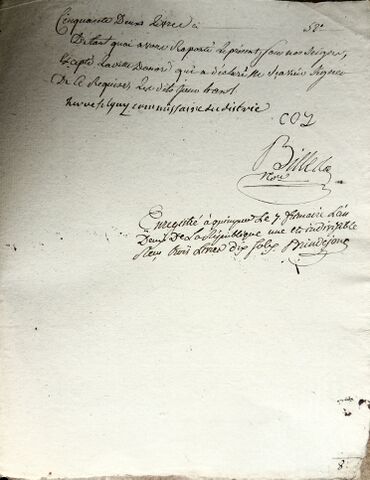 Cinquante Deux Livres ci 52#
De tout quoi avons Raporté Le présent sous nos seigns,
Excepté La veuve Donard qui a déclaré ne scavoir signer
De Ce Requise Les dits jour & an
commissaire du district
COZ
Billette
Nore
Enregistré à quimper Le 7 frimaire L'an
Deux De La République une et indivisible
Reçu trois Livres dix sols
8